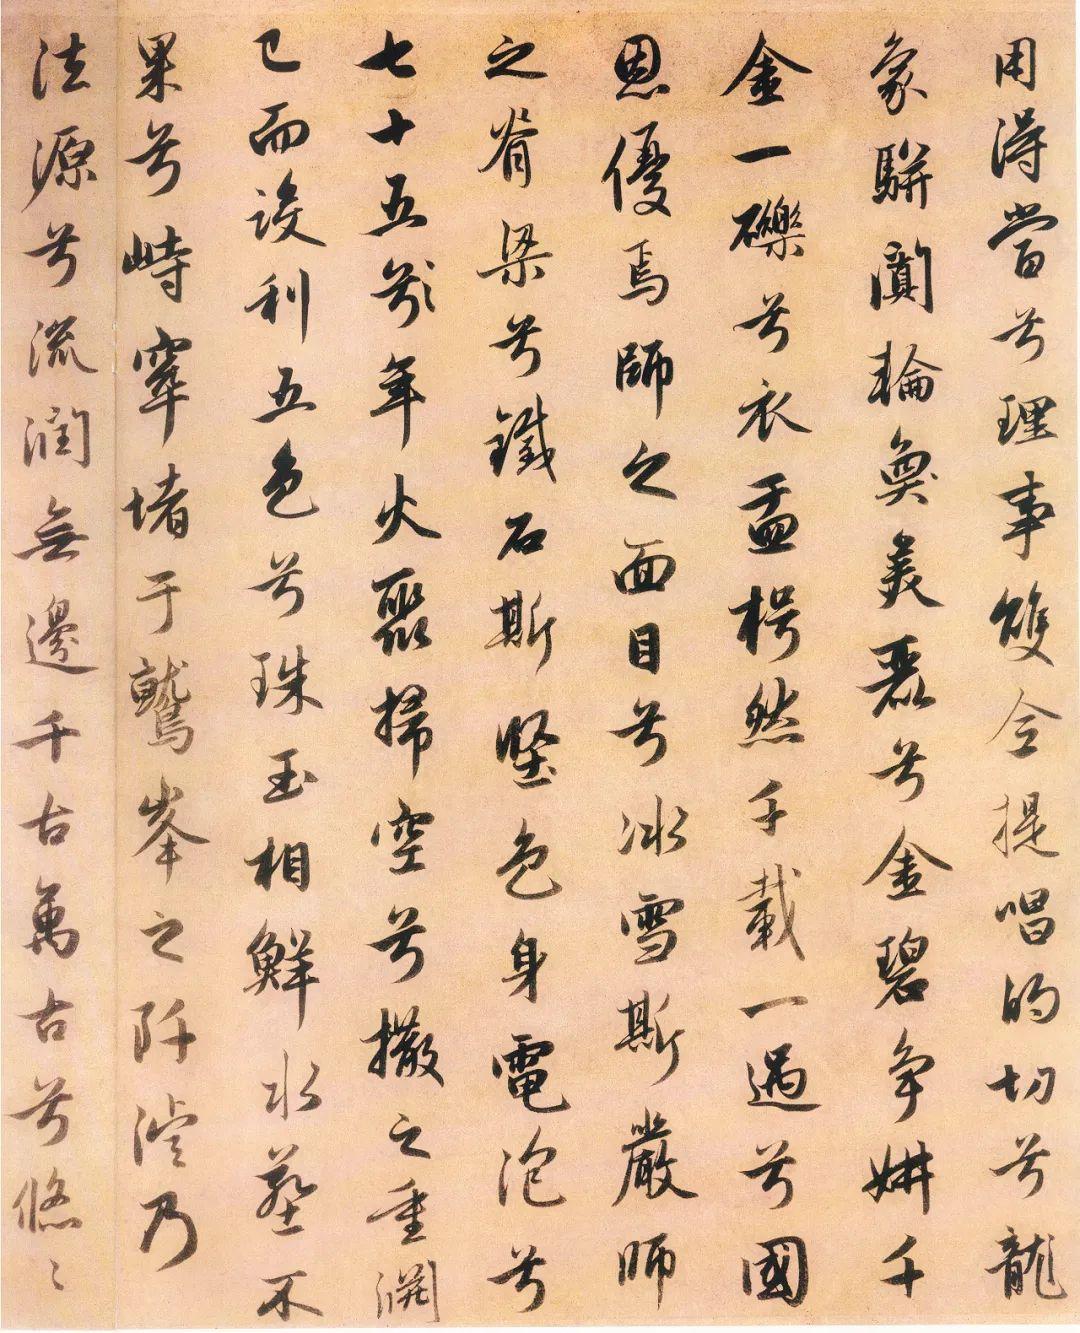 用得當兮理事雙全提唱的切兮龍
象駢闐輪奐美麗兮金碧爭妍千
金一礫兮衣盂枵然千載一遇兮國
恩優焉師之面目兮冰雪斯嚴師
之脊梁兮鐵石斯堅色身電泡兮
七十五歲年火聚掃空兮撒之重淵
已而設利五色兮珠玉相鮮水葬不
果兮峙窣堵于鷲峯之阡乃
法源兮流潤無邊千古萬古兮悠々